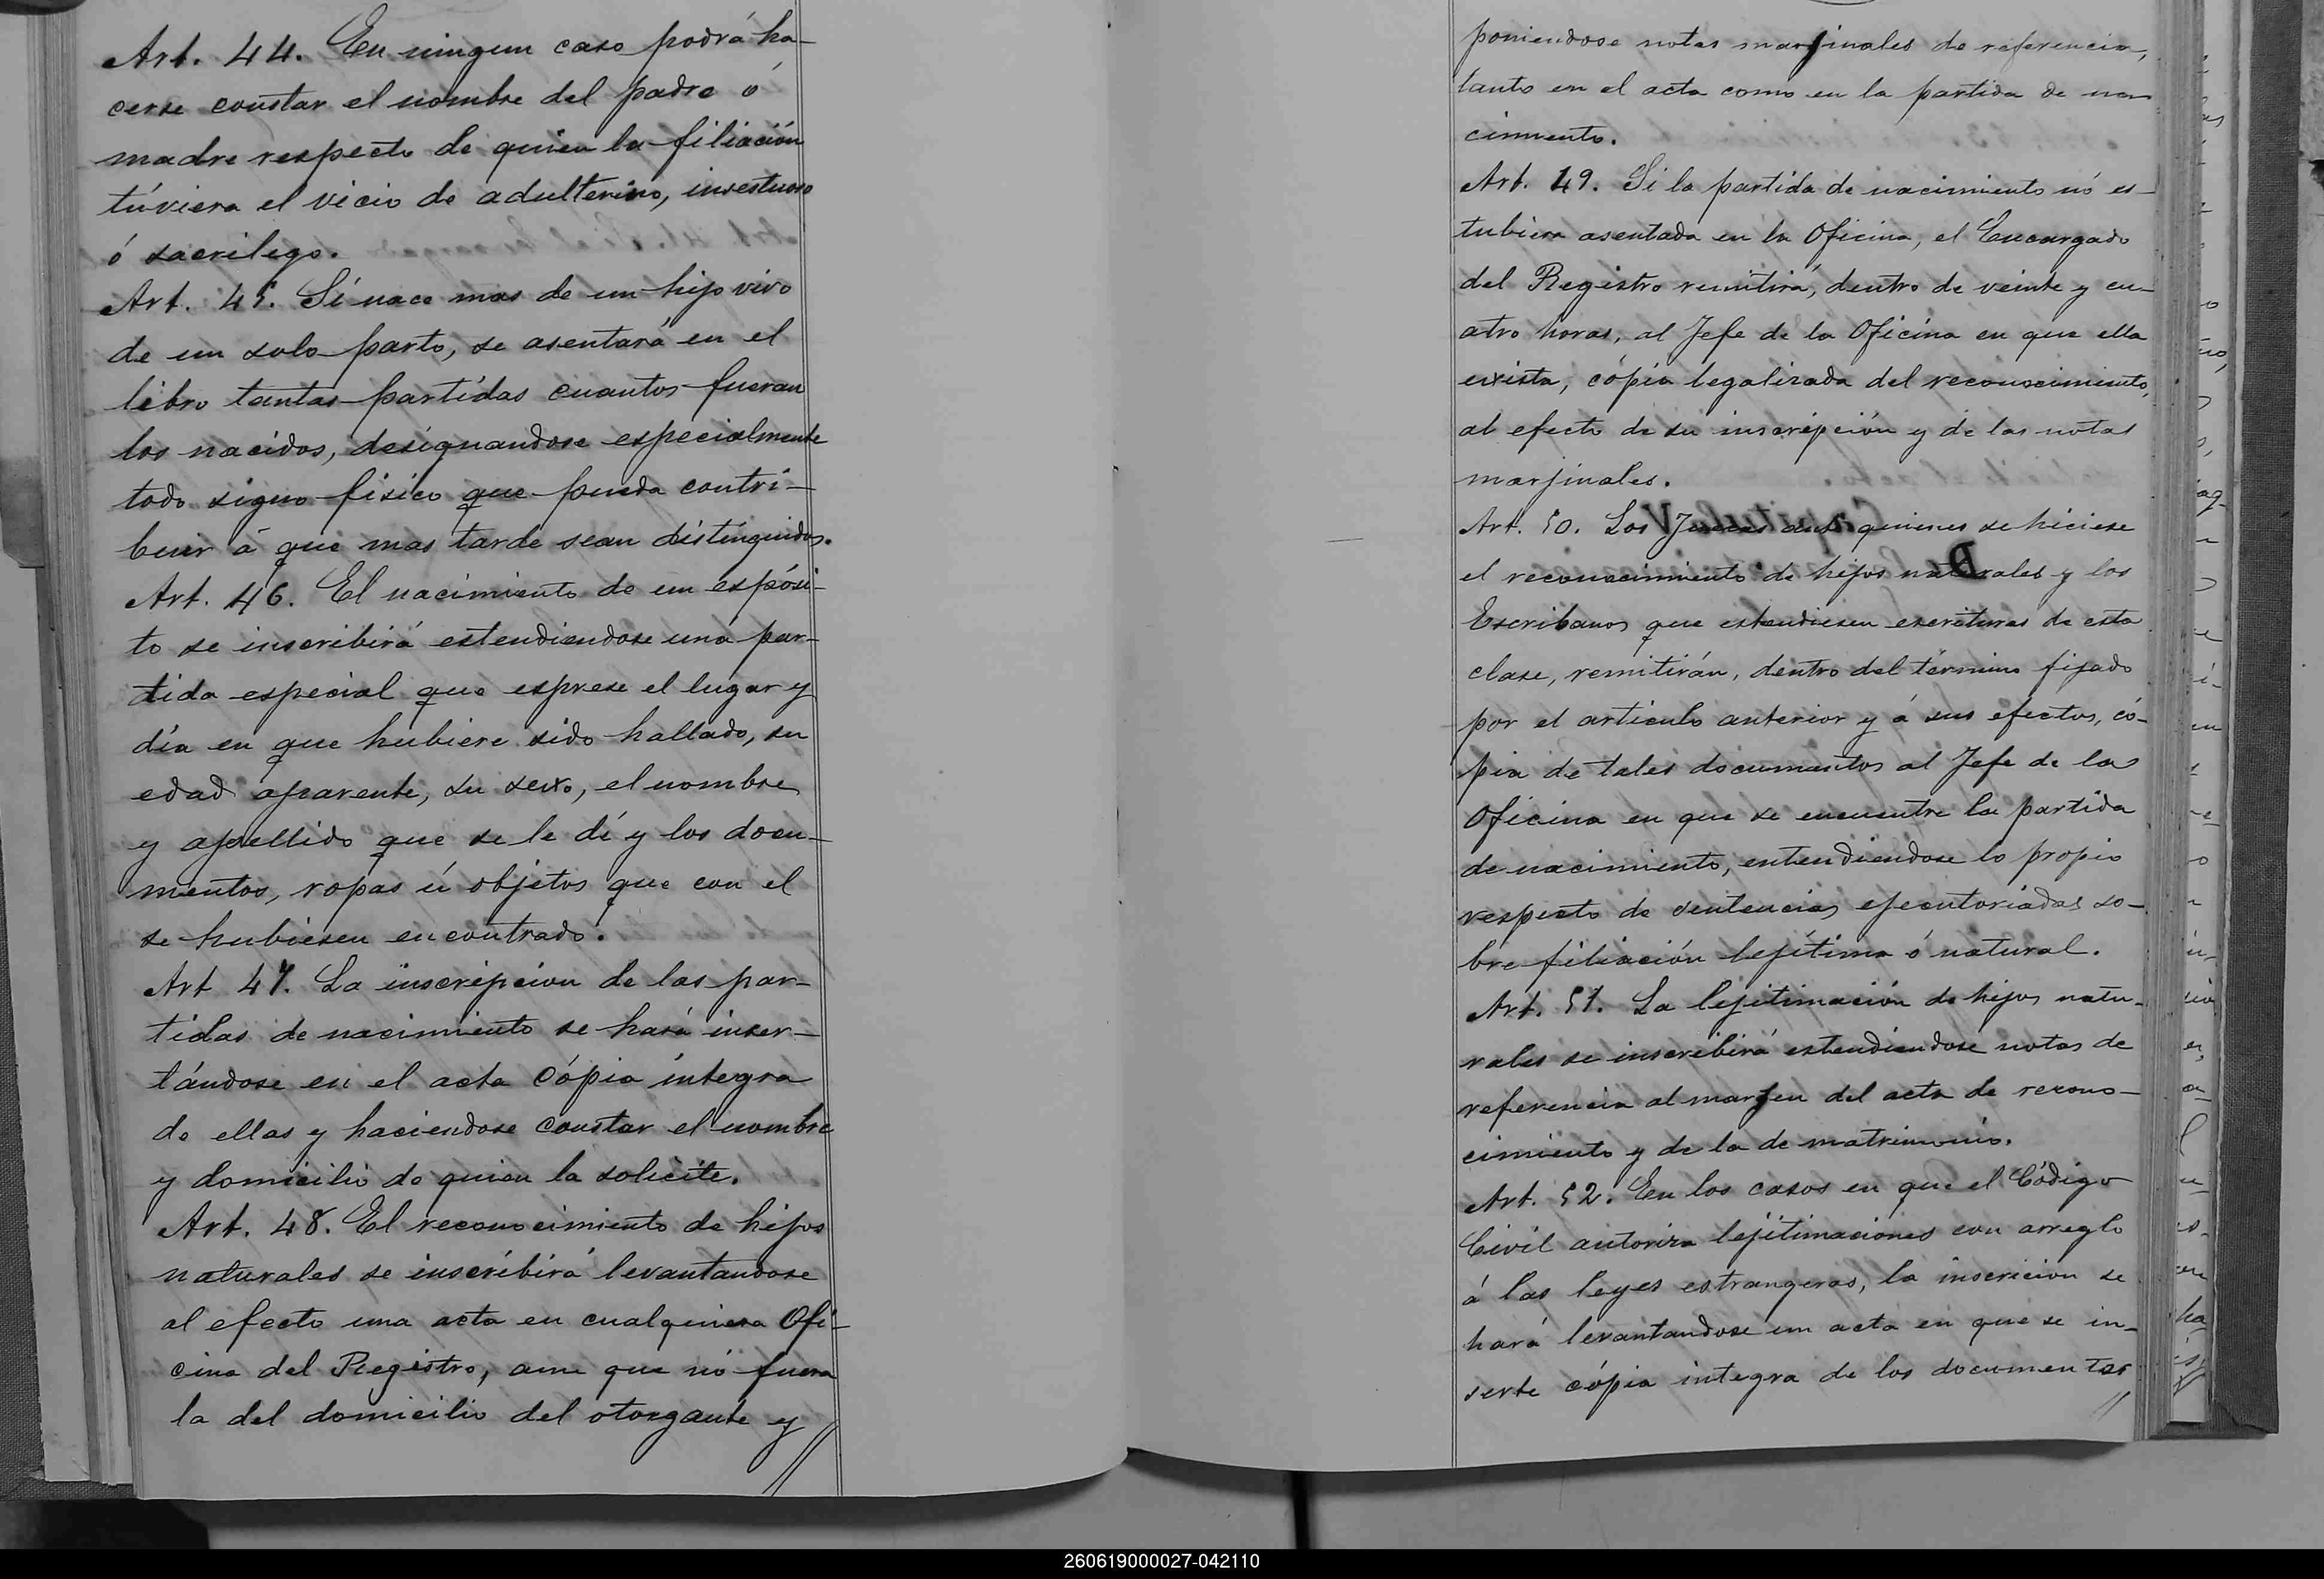 Art. 44. En ningun caso podrá ha-
cerse constar el nombre del padre ó
madre respecto de quien la filiación
túviera el vicio de adulterino, insestuoso
ó sacrilego.
Art. 45. Sí nace mas de un hijo vivo
de un solo parto, se asentará en el
libro tantas partidas cuantos fueran
los nacidos, designandose especialmente
todo signo fisico que pueda contri-
buir á que mas tarde sean distinguidos.
Art. 46. El nacimiento de un espósi-
to se inscribirá estendiendose una par-
tida especial que esprese el lugar y
día en que hubiere sido hallado, su
edad aparente, su sexo, el nombre
y apellido que se le dé y los docu-
mentos, ropas ú objetos que con el
se hubiesen encontrado.
Art 47. La inscripcion de las par-
tidas de nacimiento se hará inser-
tándose en el acta cópia íntegra
de ellas y haciendose constar el nombre
y domicilio de quien la solicite.
Art. 48. El reconocimiento de hijos
naturales se inscribirá levantandose
al efecto una acta en cualquiera Ofi-
cina del Registro, aun que nó fuera
la del domicilio del otorgante y
poniendose notas marjinales de referencia,
tanto en el acta como en la partida de na-
cimiento.
Art. 49. Si la partida de nacimiento nó es-
tubiera asentada en la Oficina, el Encargado
del Registro remitirá, dentro de veinte y cu-
atro horas, al Jefe de la Oficina en que ella
exista, cópia legalizada del reconocimiento,
al efecto de su inscripción y de las notas
marjinales.
Art. 50. Los Jueces ante quienes se hiciese
el reconocimiento de hijos naturales y los
Escribanos que estendiesen escrituras de esta
clase, remitirán, dentro del término fijado
por el articulo anterior y á sus efectos, có-
pia de tales documentos al Jefe de la
Oficina en que se encuentre la partida
de nacimiento, entendiendose lo propio
respecto de sentencias ejecutoriadas so-
bre filiación lejítima ó natural.
Art. 51. La lejitimación de hijos natu-
rales se inscribirá estendiendose notas de
referencia al marjen del acta de recono-
cimiento y de la de matrimonio.
Art. 52. En los casos en que el Código
Civil autoriza lejitimaciones con arreglo
á las leyes estrangeras, la inscricion se
hará levantandose un acta en que se in-
serte cópia integra de los documentos
260619000027-042110